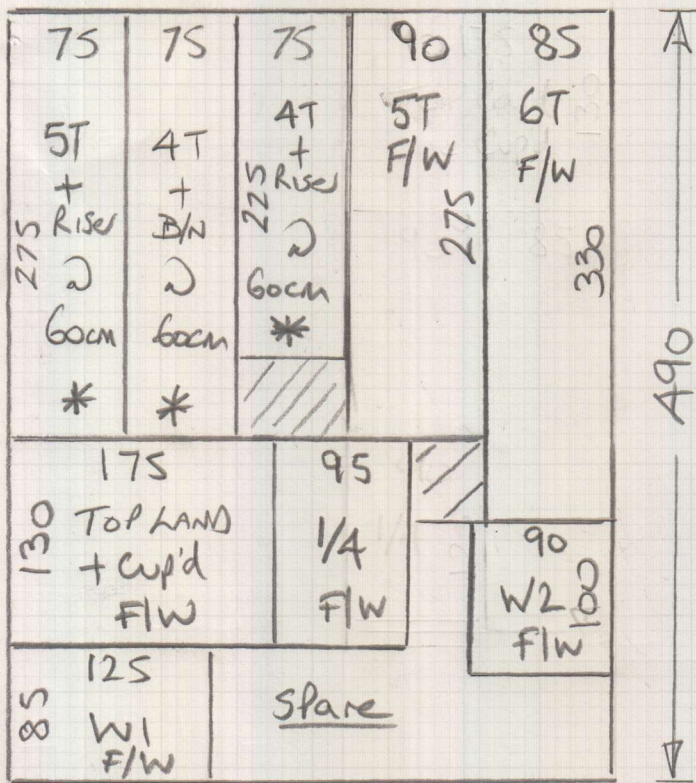 75
5T
+
Riser
275
60cm
*
75
4T
+
B/N
60cm
*
75
4T
+
Riser
225
60cm
*
90
5T
F/W
275
85
6T
F/W
330
490
175
130
TOP LAND
+ Cup'd
F/W
95
1/4
F/W
90
W2
100
F/W
125
85
W1
F/W
Spare